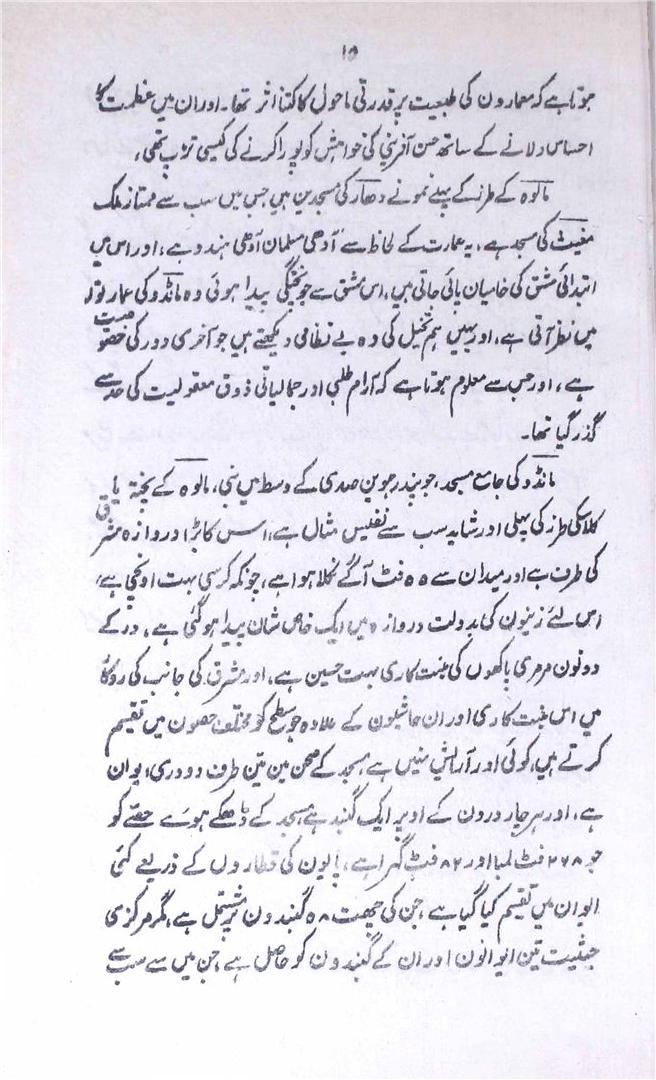 ۱۵
ہوتا ہے کہ معمارون کی طبیعت پر قدرتی ماحول کا کتنا اثر تھا۔ اور ان میں عظمت کا
احساس دلانے کے ساتھ حسن آفرینی کی خواہش کو پورا کرنے کی کیسی تڑپ تھی،
مالوہ کے طرز کے پہلے نمونے دھار کی مسجدین ہیں جس میں سب سے ممتاز ملک
مغیث کی مسجد ہے، یہ عمارت کے لحاظ سے آدھی مسلمان آدھی ہندو ہے، اور اس میں
ابتدائی مشق کی خامیان پائی جاتی ہیں، اس مشق سے جو پختگی پیدا ہوئی وہ مانڈو کی عمارتوں
میں نظر آتی ہے، اور یہیں ہم تخیل کی وہ بے نظامی دیکھتے ہیں جو آخری دور کی خصوصیت
ہے، اور جس سے معلوم ہوتا ہے کہ آرام طلبی اور جمالیاتی ذوق معقولیت کی حد سے
گذر گیا تھا۔
مانڈو کی جامع مسجد، جو پندرہوین صدی کے وسط میں بنی، مالوہ کے پختہ یا
کلاسکی طرز کی پہلی اور شاید سب سے نفیس مثال ہے، اس کا بڑا دروازہ مشرق
کی طرف ہے اور میدان سے ۵۵ فٹ آگے نکلا ہوا ہے، چونکہ کرسی بہت اونچی ہے،
اس لئے زینون کی بدولت دروازہ میں ایک خاص شان پیدا ہو گئی ہے، در کے
دونون مرمری پاکھوں کی منبت کاری بہت حسین ہے، اور مشرق کی جانب کی روکا
میں اس منبت کاری اور ان حاشیون کے علاوہ جو سطح کو مختلف حصون میں تقسیم
کرتے ہیں، کوئی اور آرایش نہیں ہے، مسجد کے صحن مین تین طرف دو دری ایوان
ہے، اور ہر چار درون کے اوپر ایک گنبد ہے، مسجد کے ڈھکے ہوے حصے کو
جو ۲۷۸ فٹ لمبا اور ۸۲ فٹ گہرا ہے، پایون کی قطاروں کے ذریعے کئی
ایوان میں تقسیم کیا گیا ہے، جن کی چھت ۵۸ گنبدون پر مشتمل ہے، مگر مرکزی
حیثیت تین ایوانون اور ان کے گنبدون کو حاصل ہے، جن میں سے سب سے